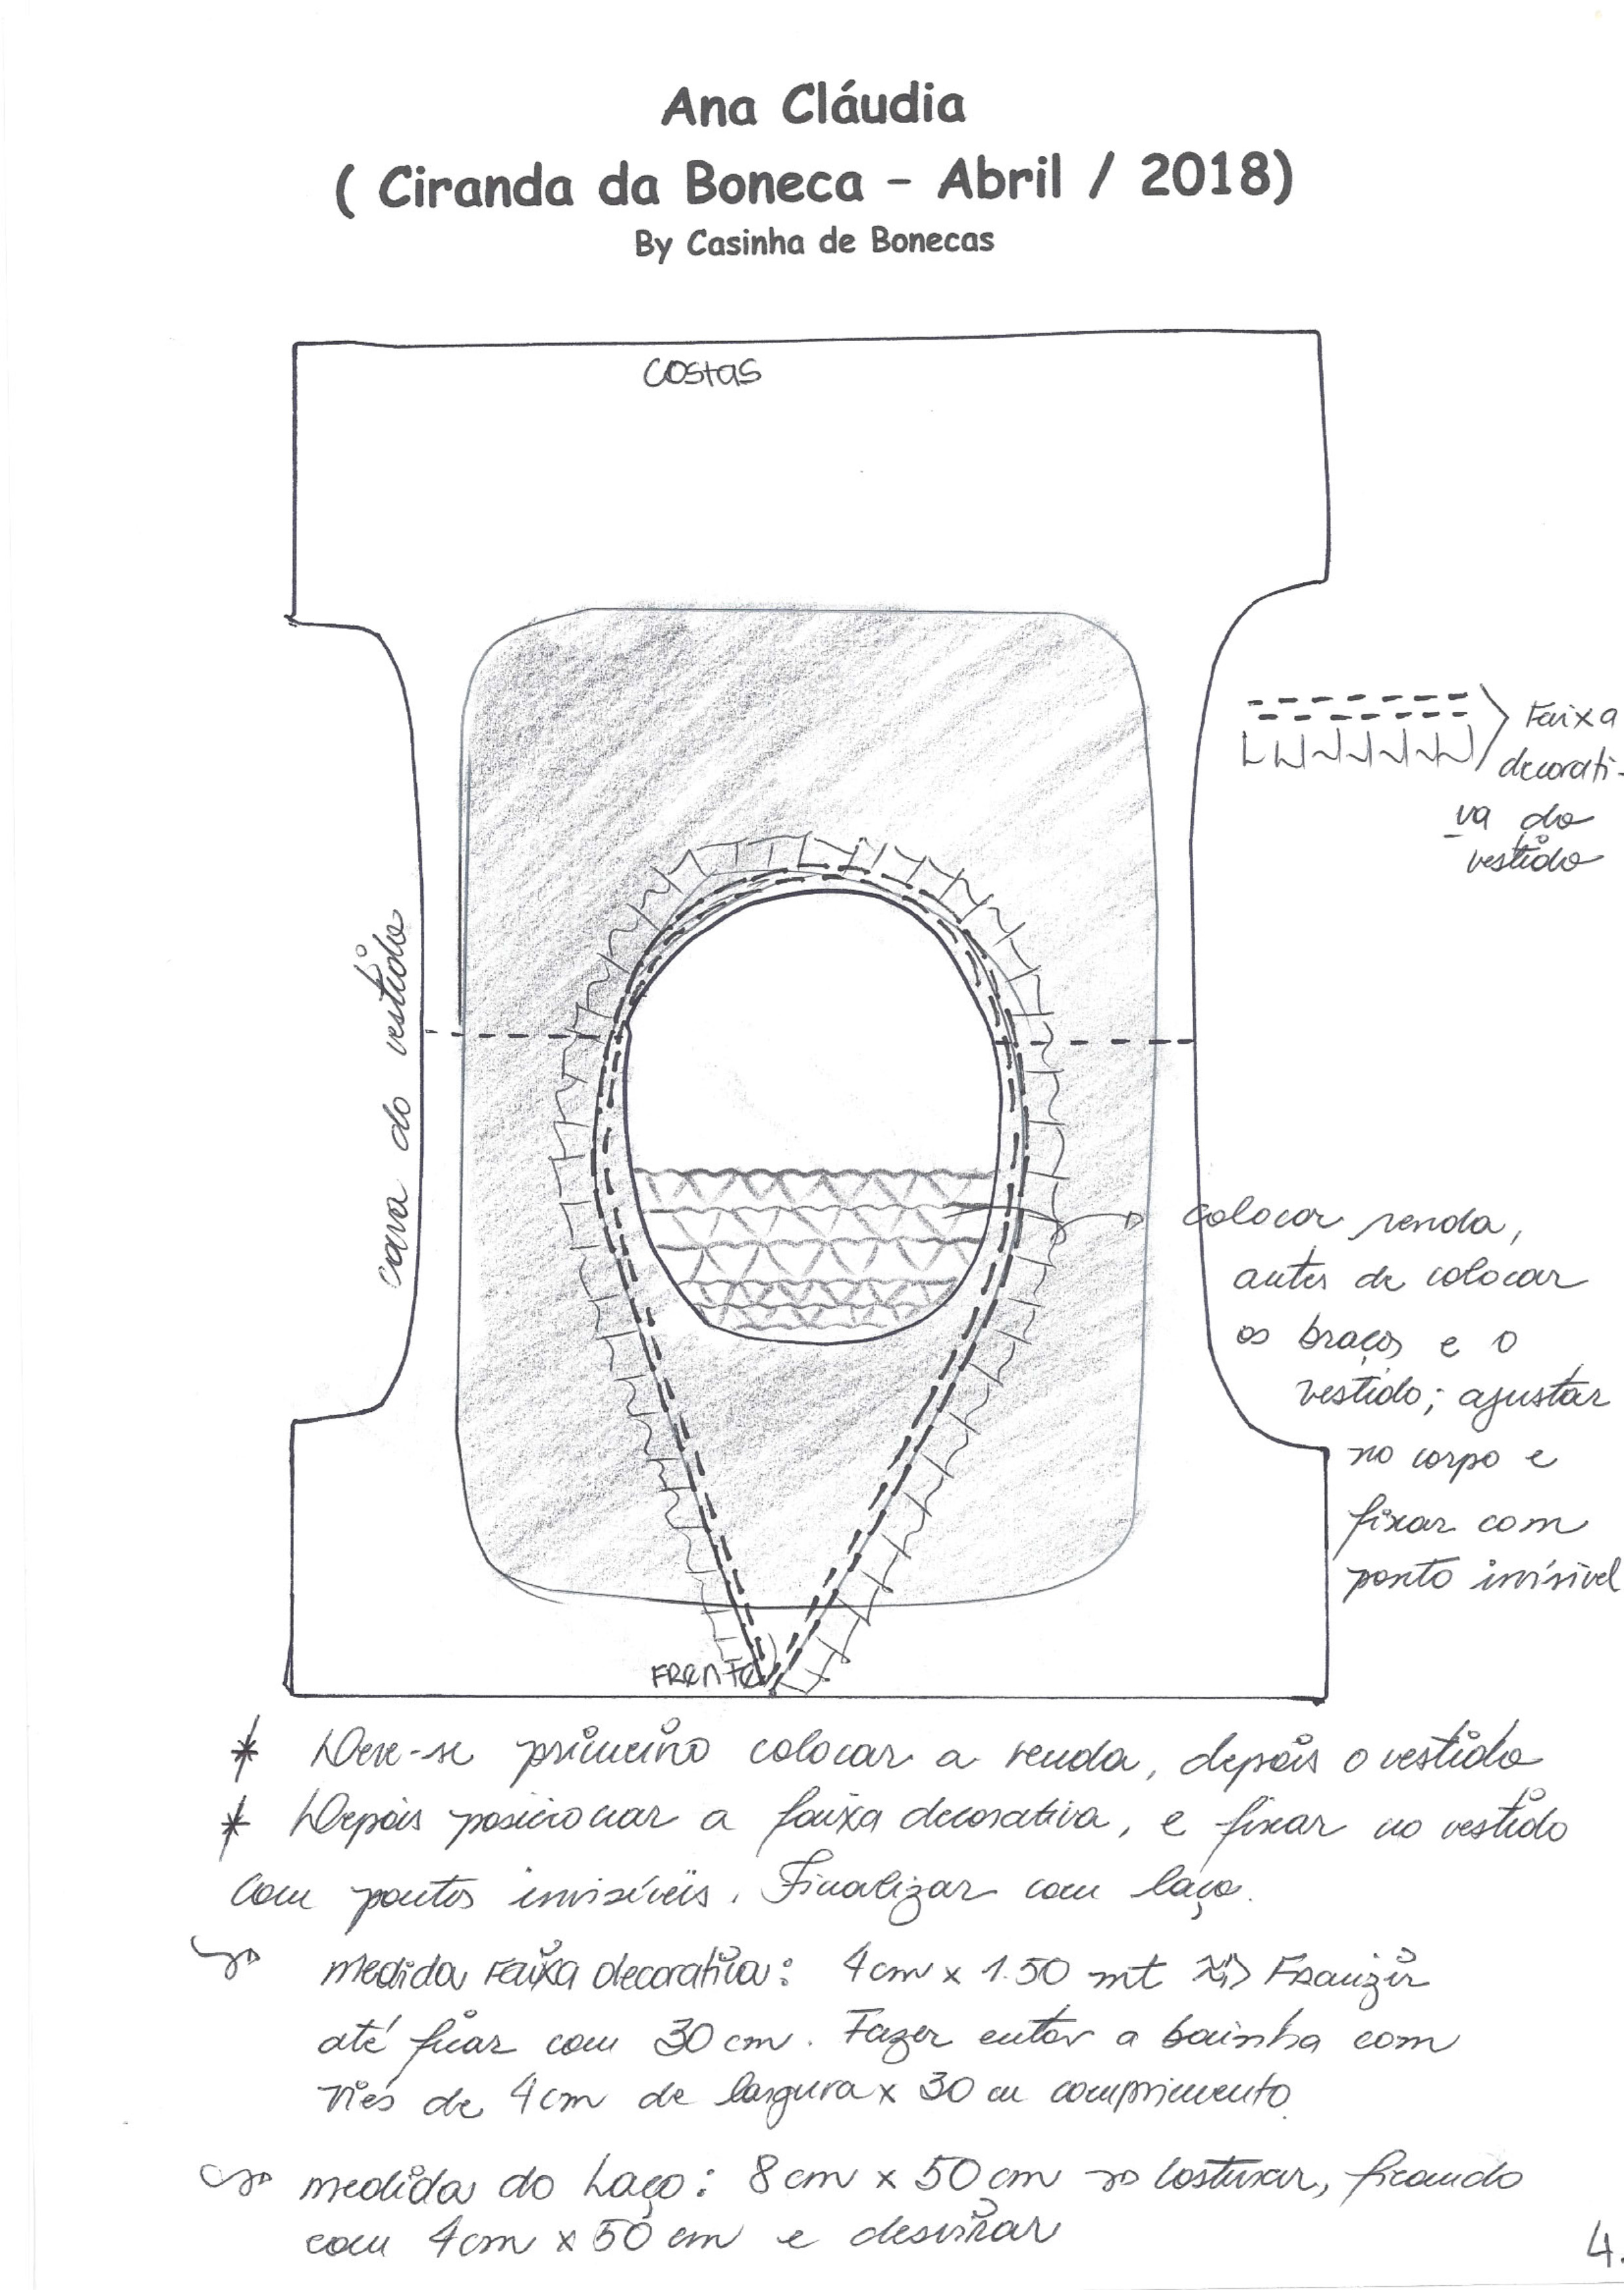 Ana Cláudia
( Ciranda da Boneca - Abril / 2018)
By Casinha de Bonecas
Costas
Faixa
decorati-
va do
vestido
cava do vestido
colocar renda,
antes de colocar
os braços e o
vestido; ajustar
no corpo e
fixar com
ponto invisível
FRENTE
* Deve-se primeiro colocar a renda, depois o vestido
* Depois posicionar a faixa decorativa, e fixar no vestido
com pontos invisíveis. Finalizar com laço.
medida Faixa decorativa: 4cm x 1.50 mt Franzir
até ficar com 30 cm. Fazer entor a bainha com
viés de 4cm de largura x 30 cm comprimento.
medida do Laço: 8 cm x 50 cm Costurar, ficando
com 4cm x 50 cm e desvirar
4.